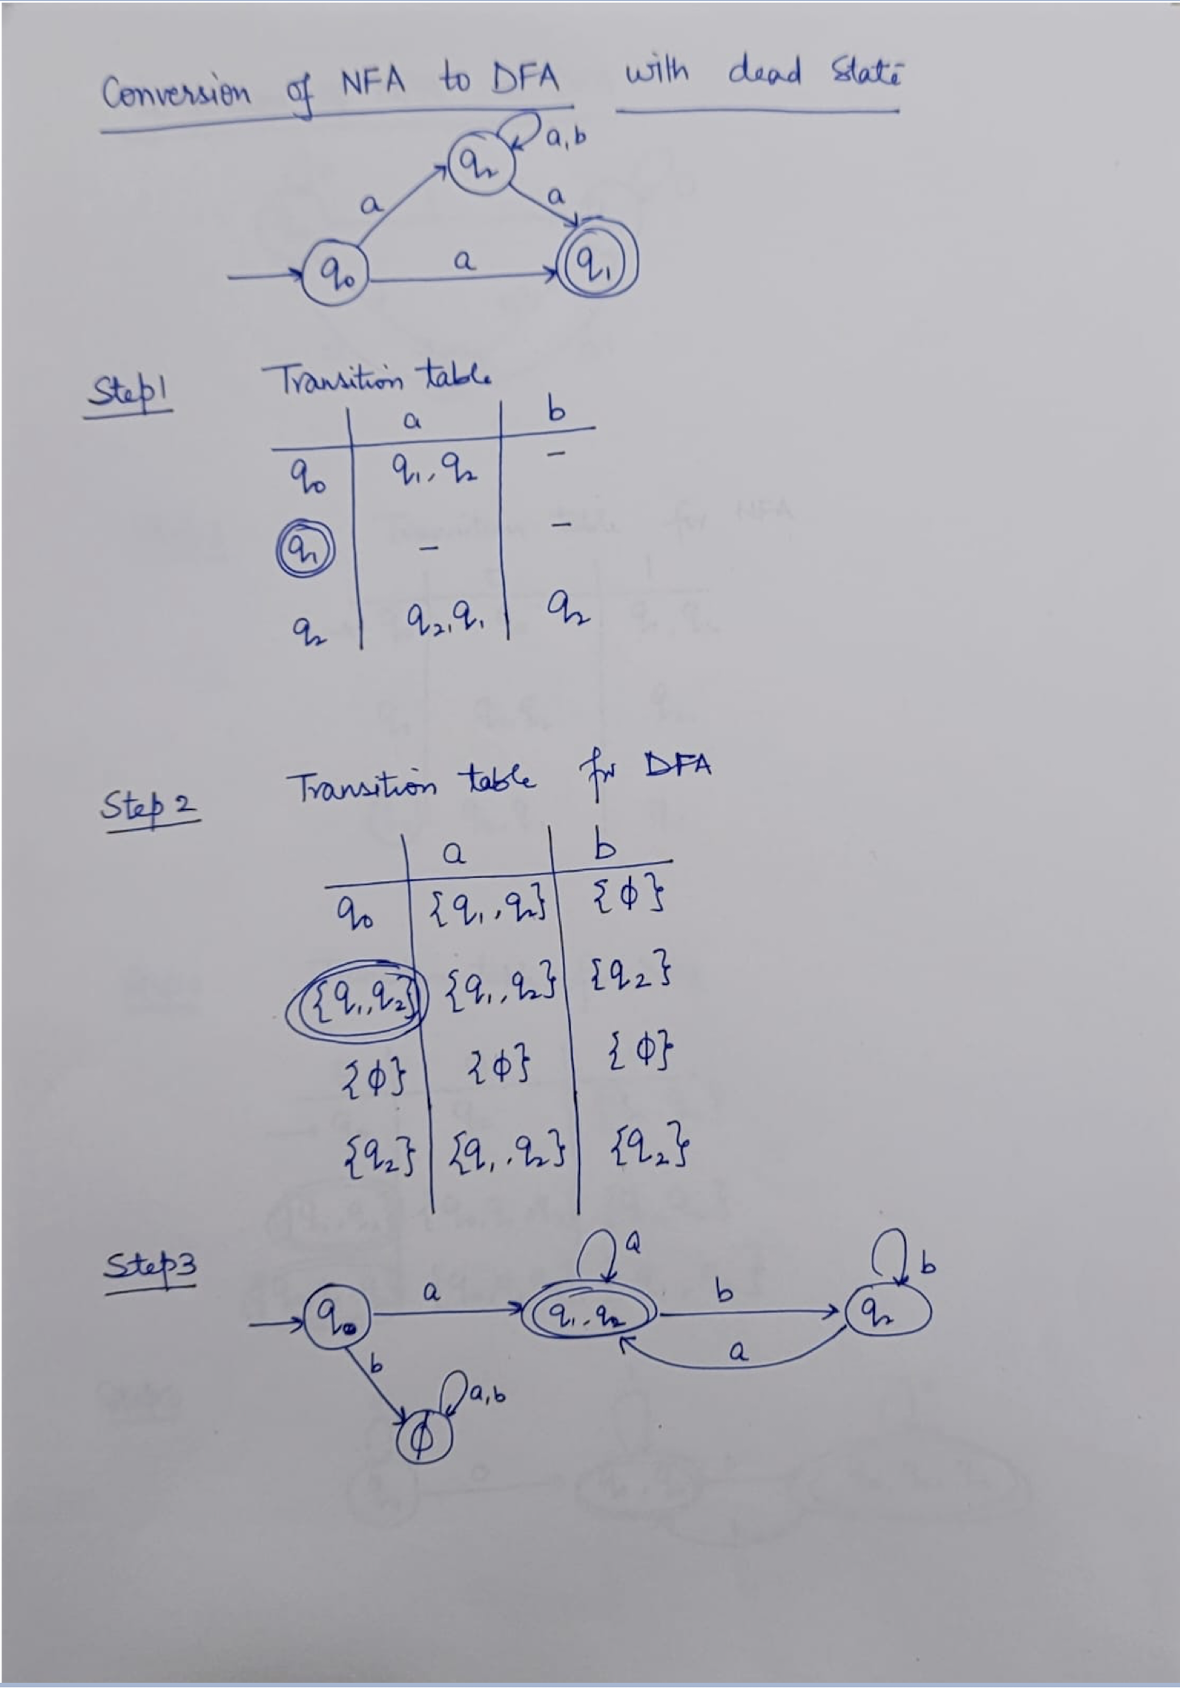 Conversion of NFA to DFA with dead state
a,b
q2
a
a
q0
a
q1
Step1
Transition table
a b
q0 q1, q2 -
q1 - -
q2 q2, q1 q2
Step 2
Transition table for DFA
a b
q0 {q1, q2} {ϕ}
{q1, q2} {q1, q2} {q2}
{ϕ} {ϕ} {ϕ}
{q2} {q1, q2} {q2}
Step3
a
b
q0
a
q1, q2
b
q2
b
a
a,b
ϕ